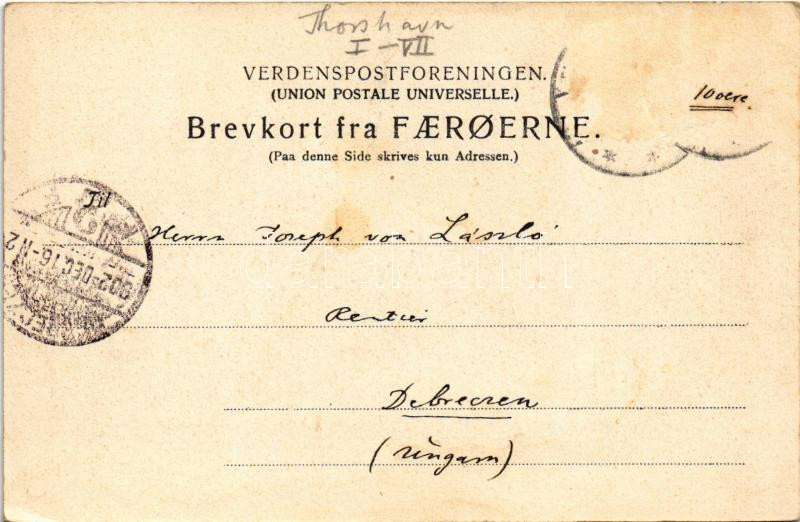 Thorshavn
I-VII
VERDENSPOSTFORENINGEN.
(UNION POSTALE UNIVERSELLE.)
10 oere.
Brevkort fra FÆRØERNE.
(Paa denne Side skrives kun Adressen.)
Til
Herrn Joseph von László
darabanth
902 DEC 16 N 2
Rentier
Debreczen
(Ungarn)